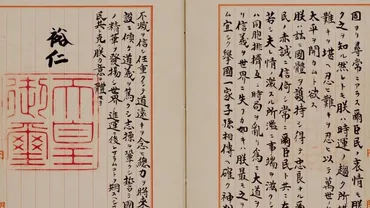 固ヨリ尋常ニアラス爾臣民ノ衷情モ
ク之ヲ知ル然レトモ朕ハ時運ノ趨ク所
難キヲ堪ヘ忍ヒ難キヲ忍ヒ以テ萬世
太平ヲ開カムト欲ス
朕ハ茲ニ國體ヲ護持シ得テ忠良ナル
民ノ赤誠ニ信倚シ常ニ爾臣民ト共ニ在
若シ夫レ情ノ激スル所濫ニ事端ヲ滋
ハ同胞排擠互ニ時局ヲ亂リ爲ニ大道ヲ
リ信義ヲ世界ニ失フカ如キハ朕最モ之
ム宜シク擧國一家子孫相傳ヘ確ク神州
不滅ヲ信シ任重クシテ道遠キヲ念ヒ總力ヲ將來
設ニ傾ケ道義ヲ篤クシ志操ヲ鞏クシ誓テ國
精華ヲ發揚シ世界ノ進運ニ後レサラムコトヲ期スヘシ
民其レ克ク朕カ意ヲ體セヨ
裕仁
天皇
御璽